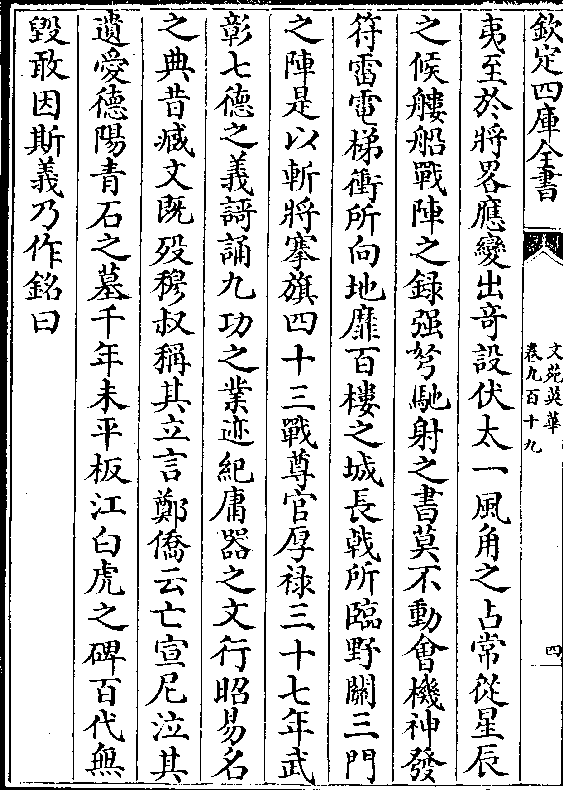 欽定四庫全書
文苑英華
卷九百十九
四
夷至於將畧應變出竒設伏太一風角之占常從星辰
之候艛船戰陣之録强弩馳射之書莫不動會機神發
符雷電梯衝所向地靡百樓之城長戟所臨野闢三門
之陣是以斬將搴旗四十三戰尊官厚禄三十七年武
彰七德之義謌誦九功之業迹紀庸器之文行昭易名
之典昔臧文既殁穆叔稱其立言鄭僑云亡宣尼泣其
遺愛德陽青石之墓千年未平板江白虎之碑百代無
毀敢因斯義乃作銘曰